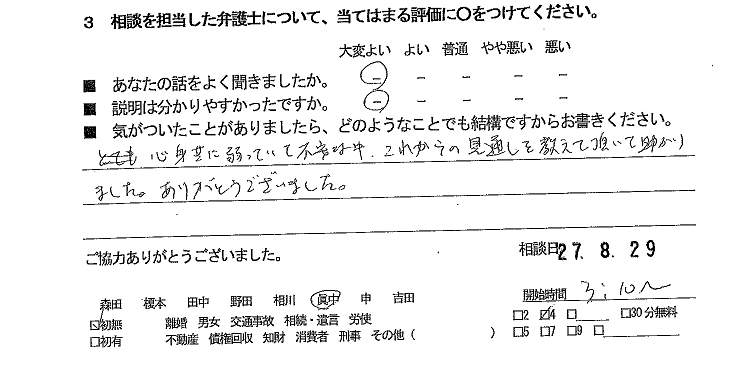 3 相談を担当した弁護士について、当てはまる評価に〇をつけてください。
大変よい よい 普通 やや悪い 悪い
■ あなたの話をよく聞きましたか。 － － － － －
■ 説明は分かりやすかったですか。 － － － － －
■ 気がついたことがありましたら、どのようなことでも結構ですからお書きください。
とても 心身共に弱っていて不安な中、これからの見通しを教えて頂いて助かり
ました。ありがとうございました。
ご協力ありがとうございました。 相談日 27. 8. 29
森田 榎本 田中 野田 相川 眞中 申 吉田
開始時間 3:10〜
☑初無 離婚 男女 交通事故 相続・遺言 労使 □2 ☑4 □____ □30分無料
□初有 不動産 債権回収 知財 消費者 刑事 その他 ( ) □5 □7 □9 □____